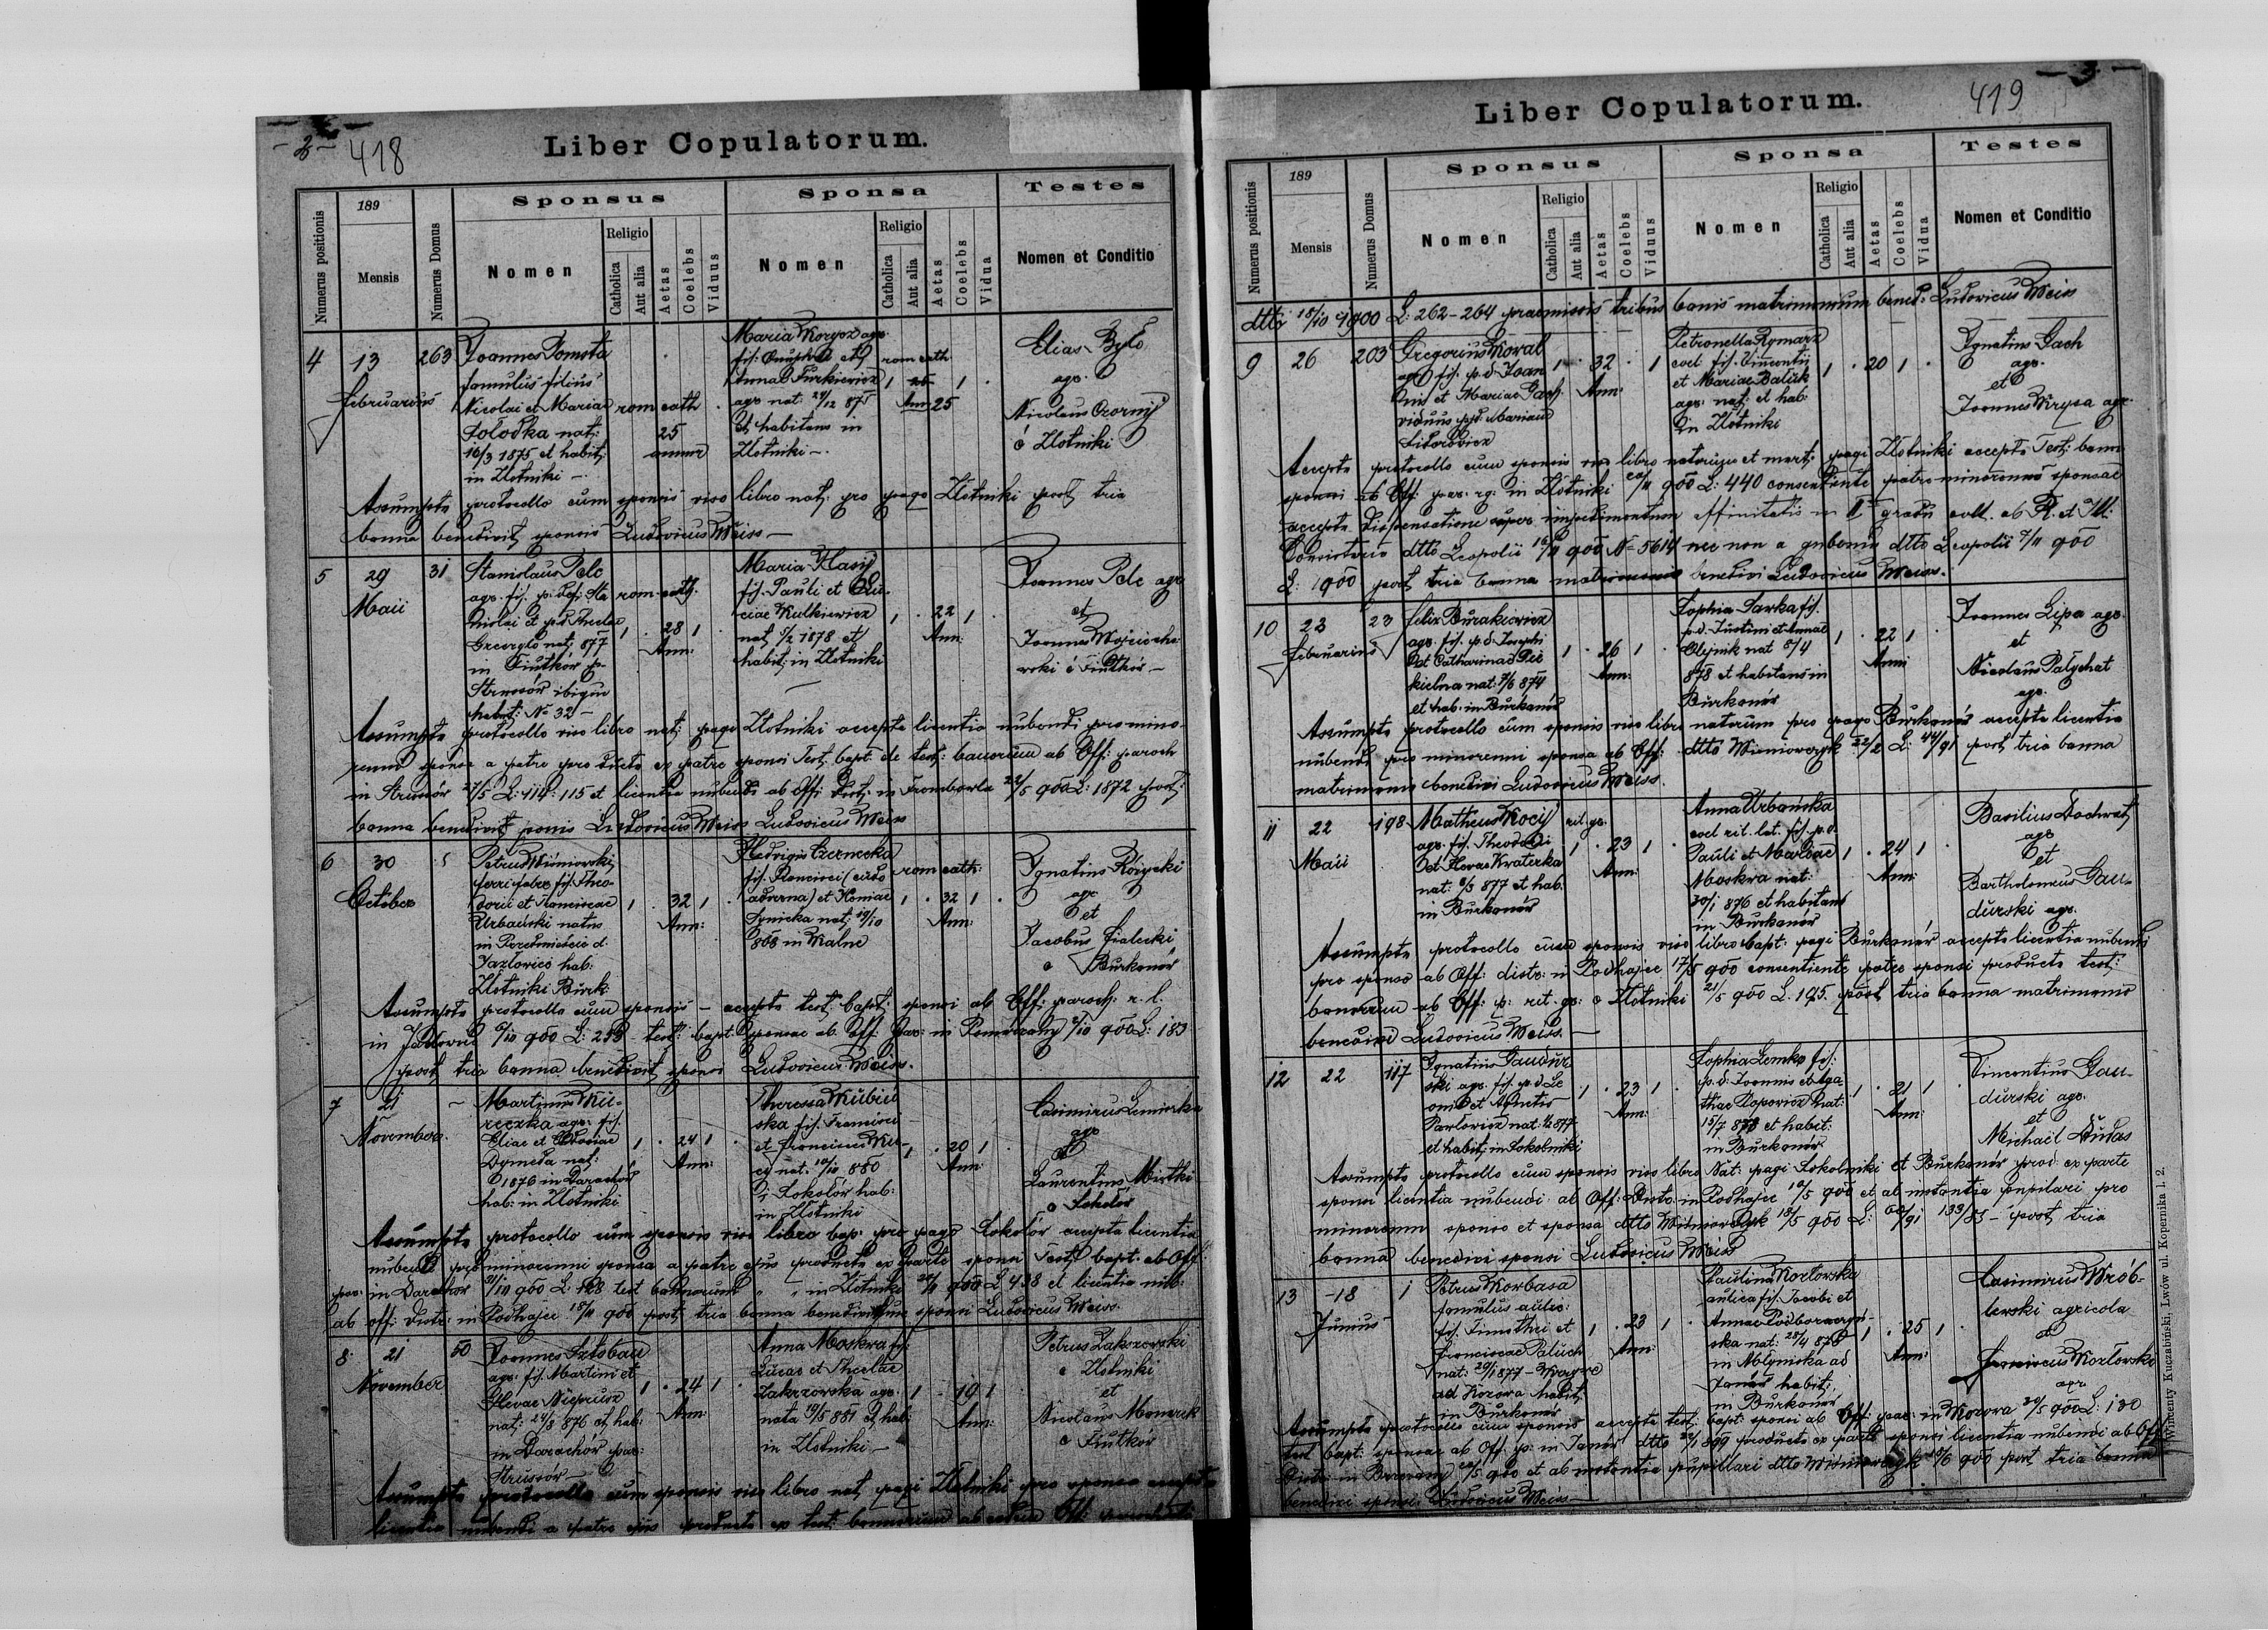 - 2 -
418
Liber Copulatorum.
Numerus positionis
189
Mensis
Numerus Domus
Sponsus
Nomen
Religio
Catholica
Aut alia
Aetas
Coelebs
Viduus
Sponsa
Nomen
Religio
Catholica
Aut alia
Aetas
Coelebs
Vidua
Testes
Nomen et Conditio
4
13
Februarius
263
Joannes Pomota
famulus filius
Nicolai et Mariae
Solodka nat:
16/3 1875 et habit:
in Złotniki -
rom cath
25
annor
Maria Korysz agr.
fil: Onuphrii et
Annae Furkiewicz
agr. nat: 24/12 875
et habitans in
Złotniki -.
rom cath
1
25
Ann 25
1
Elias Było
agr.
Nicolaus Czornyj
è Złotniki
Assumpto protocollo cum sponsis viso libro nat: pro pago Złotniki post tria
banna benedixit sponsis Ludovicus Weiss -
5
29
Maii
31
Stanislaus Pelc
agr. fil. p. def. Ni
colai et p.d. Theclae
Greorglo nat: 877
in Fiutków par
Strussów ibique
habit: No 32 -
rom. cath.
1 . 28 1 .
Ann:
Maria Hasij
fil. Pauli et Lu-
ciae Kulkiewicz
nat: 1/2 1878 et
habit: in Złotniki
1 . 22 1 .
Ann:
Joannes Pelc agr
et
Joannes Wojciecho
wski è Fiutków -
Assumpto protocollo viso libro nat: pagi Złotniki accepta licentia nubendi pro mino-
renni sponsa a patre producto ex parte sponsi Test: bapt: et test: bannorum ab Off: paroch
in Strussów 27/5 L: 114: 115 et licentia nubendi ab Off: Distr: in Trembowla 22/5 900 L: 1872 post:
banna benedixit sponsis Ludovicus Weiss Ludovicus Weiss
6
30
October
5
Petrus Wisniowski
ferri faber fil. Theo-
dorii et Franciscae
Urbański natus
in Przedmieście d.
Jazłowiec hab:
Złotniki Burk:
1 . 32 1 .
Ann:
Hedvigis Czernecka
fil. Francisci
et Xeniae
Synicka nat: 19/10
868 in Kalne
rom cath:
1 . 32 1 .
Ann:
Ignatius Róžycki
agr
et
Jacobus Fialecki
è Burkanów
Assumpto protocollo cum sponsis - accepto test: bapt: sponsi ab Off: paroch: r. l.
in Jazłowiec 6/10 900 L: 253 - test: bapt: sponsae ab Off: par: in Pomorzany 2/10 900 L: 183
post tria banna benedixit sponsi Ludovicus Weiss.
7
21
November.
-
Martinus Ku-
reczka agr: fil.
Eliae et Eudociae
Dymeda nat:
1876 in Darachów
hab: in Złotniki
1 . 24 1 .
Ann:
Theressa Kubiń
ska fil. Francisci
et Franciscae Ku-
cy nat: 10/10 880
in Sokołów hab:
in Złotniki
1 . 20 1 .
Ann:
Casimirus Lemiszka
agr
et
Laurentius Mirtki
è Sokołów
Assumpto protocollo cum sponsis viso libro bap: pro pago Sokołów accepta licentia
nubendi pro minorenni sponsa a patre ejus producto ex parte sponsi Test: bapt: ab Off:
par: in Darachów 31/10 900 L: 528 test bannorum " " in Złotniki 20/11 900 L 438 et licentia nub:
ab off: Distr: in Podhajce 15/11 900 post tria banna benedixi sponsi Ludovicus Weiss -
8
21
November
50
Joannes Sztoban
agr. fil. Martini et
Hevae Nieprusz
nat: 24/8 876 et hab:
in Darachów par:
Strussów -
1 . 24 1 .
Ann:
Anna Moskwa fil:
Lucae et Theclae
Zakrzowska agr:
nata 19/5 881 et hab:
in Złotniki -
1 . 19 1
Ann:
Petrus Zakrzowski
è Złotniki
et
Nicolaus Monczak
è Fiutków
Assumpto protocollo cum sponsis viso libro nat: pagi Złotniki pro sponsa accepta
licentia nubendi a patre ejus producto ex test: bannorum ab eodem Off: parochiali
419
- 3 -
Liber Copulatorum.
Numerus positionis
189
Mensis
Numerus Domus
Sponsus
Nomen
Religio
Catholica
Aut alia
Aetas
Coelebs
Viduus
Sponsa
Nomen
Religio
Catholica
Aut alia
Aetas
Coelebs
Vidua
Testes
Nomen et Conditio
dtto 18/10 1900 L: 262-264 praemissis tribus banis matrimonium bened: Ludovicus Weiss
9
26
203
Gregorius Kowal
agr fil. p. d. Joan
nis et Mariae Gach
viduus p.d. Mariae
Sidorowicz
1 . 32 . 1
Ann:
Petronella Rymarz
coel fil. Vincentii
et Mariae Baluk
agr: nat: et hab:
in Złotniki
1 . 20 1 .
Ignatius Gach
agr.
et
Joannes Krysa agr.
Accepto protocollo cum sponsis viso libro natorum et mort: pagi Złotniki accepto Test: bann:
sponsi ab Off: par: r.g: in Złotniki 20/11 900 L: 440 consentiente patre minorennis sponsae
accepta Dispensatione super impedimentum affinitatis in II gradu coll. ab R. et Ill.
Consistorio dtto Leopolii 16/11 900 No 5614 nec non a gubernio dtto Leopolii 7/11 900
L: 1900 post tria banna matrimonium benedixi Ludovicus Weiss.
10
23
Februarius
23
Felix Burakiewicz
agr. fil. p. d. Josephi
et Catharinae Pie
kielna nat: 7/6 874
et hab. in Burkanów
1 . 26 1 .
Ann:
Sophia Sarka fil.
p.d. Justini et Annae
Olejnik nat 8/4
878 et habitans in
Burkanów
1 . 22 1
Anni
Joannes Lipa agr.
et
Nicolaus Patychat
agr.
Assumpto protocollo cum sponsis viso libro natorum pro pago Burkanów accepta licentia
nubendi pro minorenni sponsa ab Off: dtto Wisniowczyk 22/2 L: 44/91 post tria banna
matrimonio benedixi Ludovicus Weiss.
11
22
Maii
198
Matheus Kocij
agr. fil. Theodosii
et Hevae Kraterka
nat: 6/5 877 et hab.
in Burkanów
rit. gr.
1 . 23 1 .
Ann:
Anna Urbańska
coel rit. lat. fil. p.d.
Pauli et Mariae
Moskwa nat:
30/1 876 et habitans
in Burkanów
1 . 24 1
Ann:
Basilius Dochwat
agr
et
Bartholomeus Gau-
durski agr.
Assumpto protocollo cum sponsis viso libro bapt: pagi Burkanów accepta licentia nubendi
pro sponso ab Off: distr: in Podhajce 17/5 900 consentiente patre sponsi producto test:
bannorum ab Off: p: rit. gr. è Złotniki 21/5 900 L. 195. post tria banna matrimonio
benedixi Ludovicus Weiss. -
12
22
117
Ignatius Gaudur
ski agr. fil. p.d. Le
onis et Agnetis
Pawlowicz nat: 877
et habit: in Sokolniki
1 . 23 1 .
Ann:
Sophia Lemko fil:
p. d. Joannis et Aga
thae Popowicz nat:
15/7 878 et habit:
in Burkanów
1 . 21 1 .
Ann:
Vincentius Gau-
durski agr.
et
Michaël Dudas
Assumpto protocollo cum sponsis viso libro Nat: pagi Sokolniki et Burkanów prod: ex parte
sponsi licentia nubendi ab Off: Distr: in Podhajce 10/5 900 et ab instantia pupilari pro
minorenni sponso et sponsa dtto Wisniowczyk 18/5 900 L: 60/91 133/83 - post tria
banna benedixi sponsi Ludovicus Weiss
13
18
Junius
1
Petrus Korbasa
famulus aulic:
fil. Timothei et
Franciscae Paluch
nat: 29/1 877 -
ad Kozowa habit:
in Burkanów
1 . 23 1 .
Ann:
Paulina Kozłowska
aulica fil. Jacobi et
Annae Podhoraczyń-
ska nat: 25/4 875
in Młyniska ad
Janów habit:
in Burkanów
1 . 25 1 .
Ann:
Casimirus Wrób-
lewski agricola
et
Franciscus Kozłowski
agr
Assumpto protocollo cum sponsis accepto test: bapt: sponsi ab Off: par: in Kozowa 20/5 900 L: 130
test bapt: sponsae ab Off. p: in Janów dtto 22/1 899 producto ex parte sponsi licentia nubendi ab Off
Distr: in Brzezany 20/5 900 et ab instantia pupillari dtto Wisniowczyk 18/6 900 post tria banna
benedixi sponsi: Ludovicus Weiss -
Wincenty Kuczabiński, Lwów ul. Kopernika l. 2.